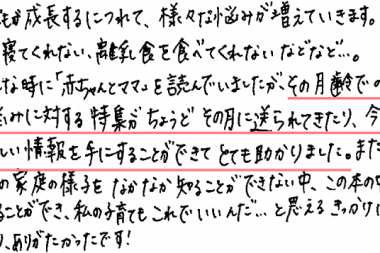 もが成長するにつれて、様々な悩みが増えていきます。
寝てくれない、離乳食を食べてくれないなどなど…。
な時に「赤ちゃんとママ」を読んでいましたが、その月齢での
みに対する特集がちょうどその月に送られてきたり、今
しい情報を手にすることができてとても助かりました。また
の家庭の様子をなかなか知ることができない中、この本の
ることができ、私の子育てもこれでいいんだ…と思えるきっかけに
り、ありがたかったです!